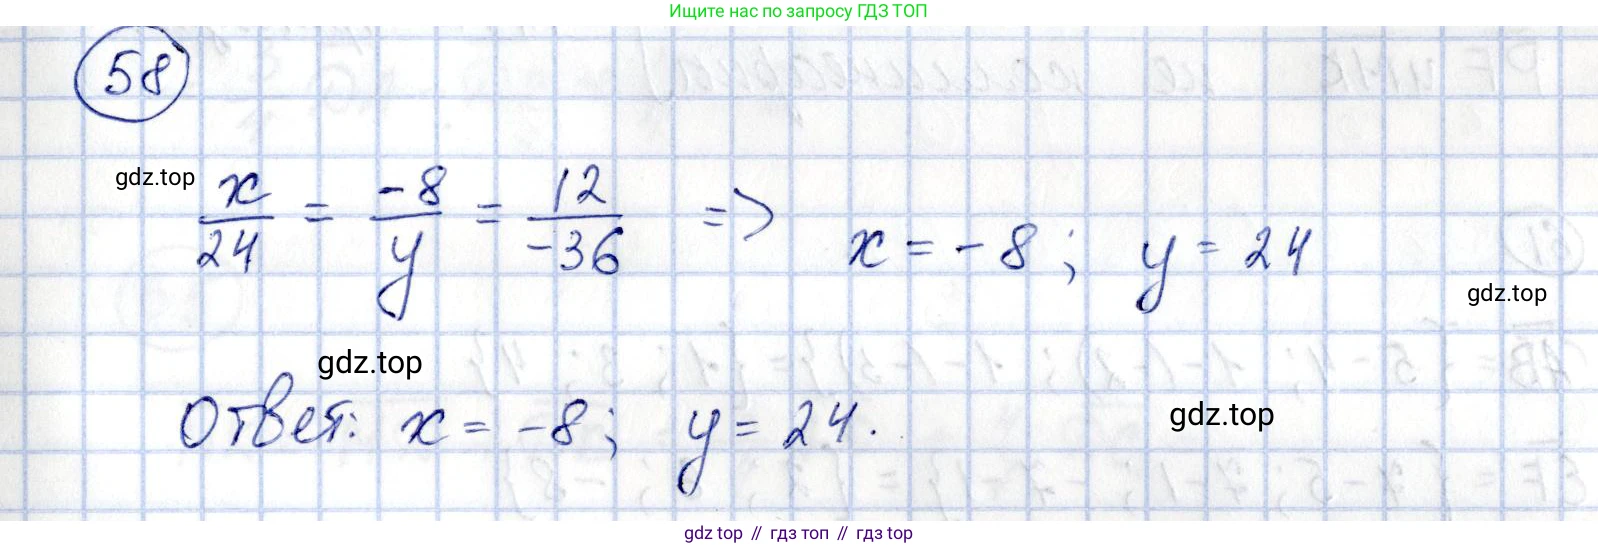 Ищите нас по запросу ГДЗ ТОП
58
gdz.top
x/24 = -8/y = 12/-36 => x = -8; y = 24
gdz.top
gdz.top
Ответ: x = -8; y = 24.
gdz.top
gdz top // гдз топ // гдз top